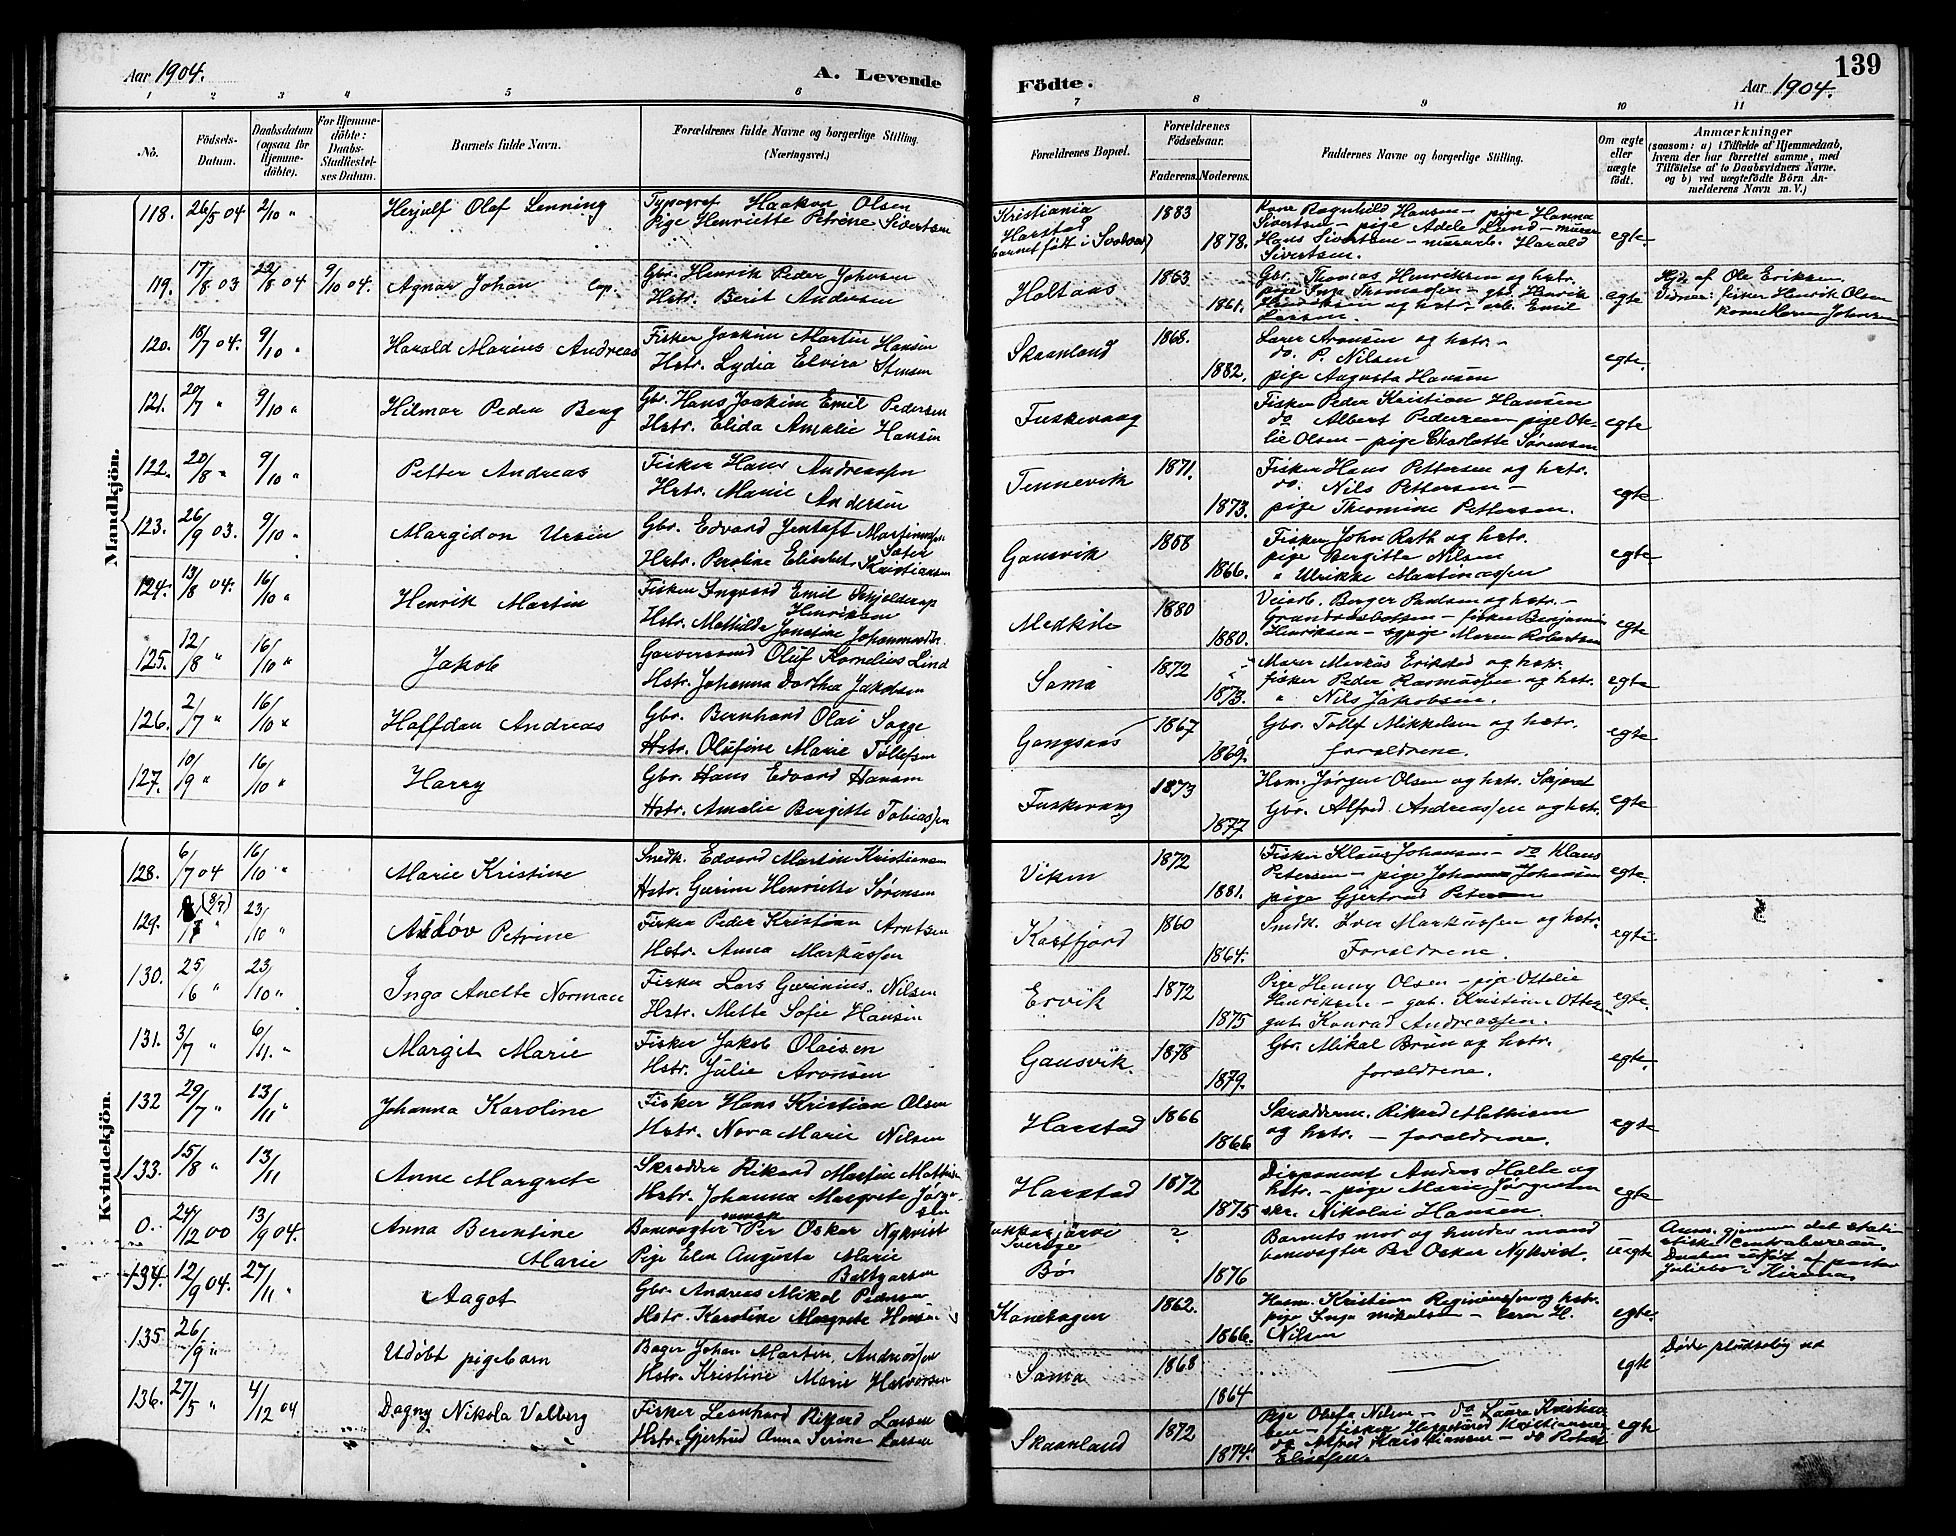 Aar 1904.
A. Levende
Födte.
Aar 1904.
139
1 2 3 4 5 6 7 8 9 10 11
No.
Födsels-
Datum.
Daabsdatum
(ogsaa for
Hjemme-
döbte).
For Hjemme-
döbte:
Daabs-
Stadfæstel-
ses Datum.
Barnets fulde Navn.
Forældrenes fulde Navne og borgerlige Stilling.
(Næringsvei.)
Forældrenes Bopæl.
Forældrenes
Födselsaar.
Faderens. Moderens.
Faddernes Navne og borgerlige Stilling.
Om ægte
eller
uægte
födt.
Anmærkninger
(saasom: a) i Tilfælde af Hjemmedaab,
hvem der har forrettet samme, med
Tilföielse af to Daabsvidners Navne,
og b) ved uægtefödte Börn An-
melderens Navn m. V.)
Mandkjön.
118. 26/5 04 2/10 " Herjulf Olaf Lenning
Typograf Haakon Olsen
Pige Henriette Petrine Sivertsen
Kristiania
Harstad
barnet født i Svolvær)
1883
1878.
Kone Ragnhild Hansen – pige Hanna
Sivertsen – pige Adele Lund – murer
Hans Sivertsen – murarb. Harald
Sivertsen.
egte
119. 17/8 03 22/8 04 9/10 04. Agnar Johan
Gbr. Henrik Peder Johnsen
Hstr. Berit Andersen
Holtaas
1863
1861.
Gbr. Thomas Henriksen og hstr.
pige Inga Thomassen – gbr. Henrik
Hendriksen og hstr. arb. Emil
Larsen.
egte
Hjd. af Ole Eriksen
Vidner: fisker Henrik Olsen
kone Maren Johnsen
120. 18/7 04. 9/10 " Harald Marius Andreas
Fisker Joakim Martin Hansen
Hstr. Lydia Elvira Stensen
Skaanland
1868.
1882.
Lærer Aronsen og hstr. –
do. P. Nilsen
pige Augusta Hansen
egte.
121. 20/7 " 9/10 " Hilmar Peder Berg
Gbr. Hans Joakim Emil Pedersen
Hstr. Elida Amalie Hansen
Fuskevaag
Fisker Peder Kristian Hansen
do Albert Pedersen – pige Ote-
lie Olsen – pige Charlotte Sørensen
egte
122. 20/8 " 9/10 " Petter Andreas
Fisker Hans Andreassen
Hstr. Marie Andersen
Tennevik
1871.
1873.
Fisker Hans Pettersen og hstr.
do. Nils Pettersen –
pige Thomine Pettersen.
egte
123. 26/9 03. 9/10 " Margidon Ursin
Gbr. Edvard Jentoft Martinussen
Sater
Hstr. Peroline Elisabet Kristiansen
Gausvik
1868
1866.
Fisker John Rath og hstr.
pige Bergitte Nilsen
" Ulrikke Martinassen
egte
124. 13/8 04. 16/10 " Henrik Martin
Fisker Ingvard Emil Schjelderup
Henriksen
Hstr. Mathilde Jonetine Johannesdtr.
Medkile
1880
1880.
Veiarb. Berger Paulsen og hstr. –
fisker Benjamin
Henriksen – Maren Robertsen
egte
125. 12/8 " 16/10 " Jakob
Garversvend Oluf Kornelius Lind
Hstr. Johanna Dorthea Jakobsen
Sama
1872
1873.
Maler Markus Erikstad og hstr.
fisker Peder Rasmussen og hstr.
" Nils Jakobsen.
egte
126. 2/7 " 16/10 " Halfdan Andreas
Gbr. Bernhard Olai Sagge
Hstr. Olufine Marie Tollefsen
Gangsaas
1867
1869.
Gbr. Tollef Mikkelsen og hstr.
forældrene.
egte
127. 10/9 " 16/10 " Harry
Gbr. Hans Edvard Hansen
Hstr. Amalie Bergitte Tobiassen
Fuskevaag
1873
1877
Hsm. Jørgen Olsen og hstr.
Gbr. Alfred Andreassen og hstr.
egte
Kvindekjön.
128. 6/7 04 16/10 " Marie Kristine
Snedk. Edvard Martin Kristiansen
Hstr. Gurine Henriette Sørensen
Viken
1872
1881.
Fisker Klaus Johansen – do Klaus
Petersen – pige Johanna Johansen
pige Gjertrud Petersen
egte.
129. (8/7) " 23/10 " Aslöv Petrine
Fisker Peder Kristian Arntsen
Hstr. Anna Markussen
Kastfjord
1860
1864.
Snedk. Iver Markussen og hstr.
Forældrene.
egte
130. 25/6 " 23/10 " Inga Anette Norman
Fisker Lars Gærinius Nilsen
Hstr. Mette Sofie Hansen
Ervik
1872
1875
Pige Henny Olsen – pige Ottelie
Henriksen – gut. Kristian Otte-
gut. Konrad Andreassen.
egte
131. 3/7 " 6/11. " Margit Marie
Fisker Jakob Olaisen
Hstr. Julie Aronsen
Gausvik.
1878
1879.
Gbr. Mikal Brun og hstr.
forældrene.
egte.
132 29/7 " 13/11 " Johanna Karoline
Fisker Hans Kristian Olsen
Hstr. Nora Marie Nilsen
Harstad
1866
1866
Skrædderm. Rikard Mathisen
og hstr. – forældrene.
egte
133. 15/8 " 13/11 Anne Margrete
Skrædder Rikard Martin Mathisen
Hstr. Johanna Margrete Jørgen-
sen
Harstad
1872
1875
Disponent Anders Holte og
hstr. – pige Marie Jørgensen
skr. Nikolai Hansen.
egte
0. 24/12 00 13/9 04. Anna Berentine
Marie
Banevogter svensk Per Oskar Nykvist
Pige Elen Augusta Marie
Baltzarsen
Jukkasjärvi
Sverige
Bø
?
1876
Barnets mor og hendes mand
banevogter Per Oskar Nykvist.
uegte
Anm. gjennem det stati-
stiske Centralbureau.
Daaben udført af pastor
i Kiruna.
134. 12/9 04. 27/11 " Aagot
Gbr. Andreas Mikal Pedersen
Hstr. Karoline Margrete Hansen
Kanebogen
1862.
1866.
Husm. Kristian Reginiussen og hstr.
pige Inga Mikalsen – lærer H.
Nilsen
egte.
135. 26/9 " Udöbt pigebarn
Bager Johan Martin Andreassen
Hstr. Kristine Marie Halvorsen
Sama
1868
1864
egte
Døde pludselig ut
136. 27/5 " 4/12 04 Dagny Nikola Valberg
Fisker Leonhard Rikard Larsen
Hstr. Gjertrud Anna Serine Larsen
Skaanland
1872
1874.
Pige Olufa Nilsen – do Laura Kristian-
sen – fisker Kristiansen
do Alfred Kristiansen – do Robert
Eliassen.
egte